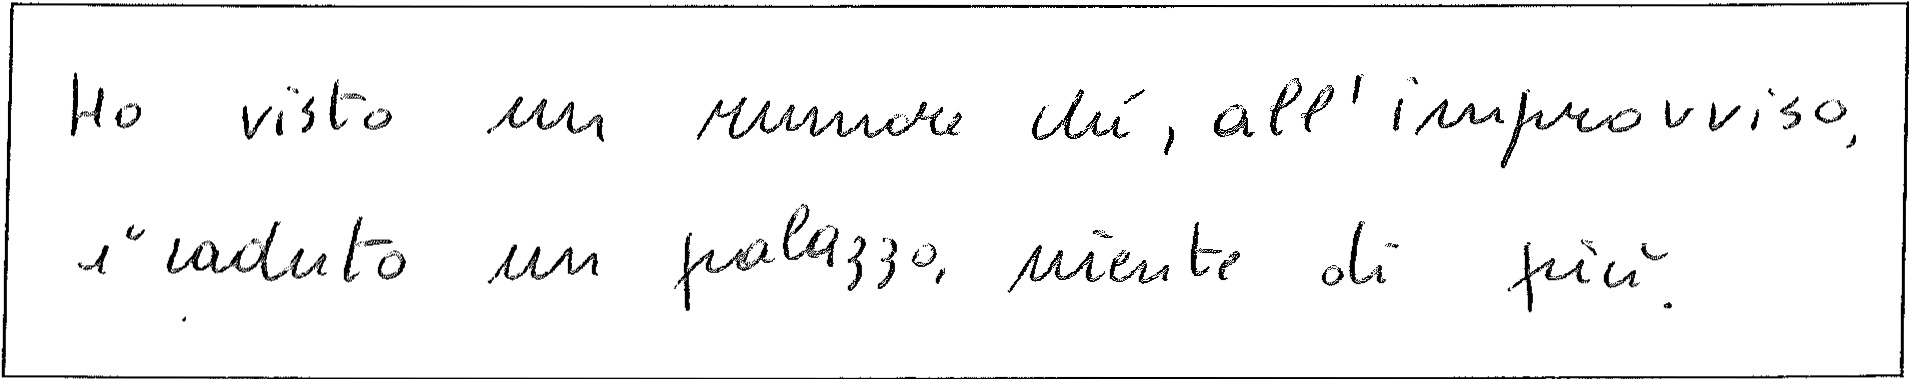 Ho visto un rumore chi, all'improvviso,
è caduto un palazzo, niente di più.